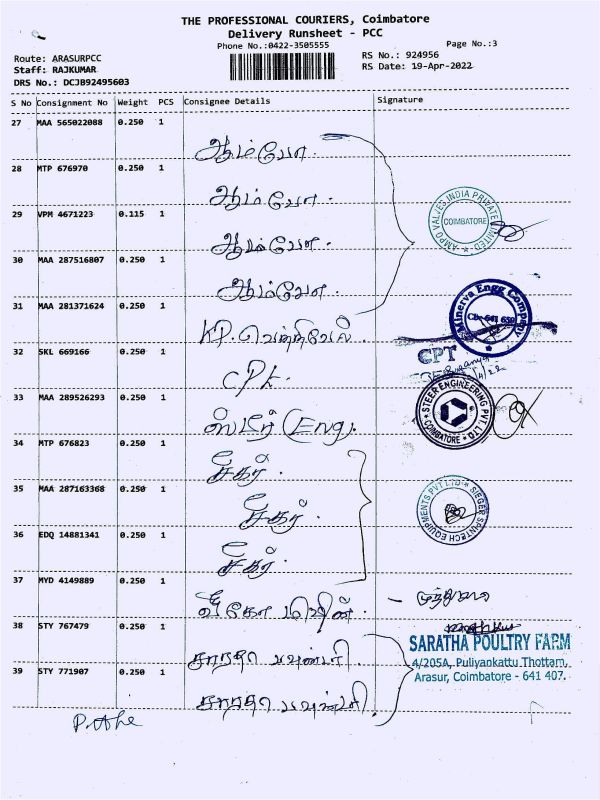 THE PROFESSIONAL COURIERS, Coimbatore
Delivery Runsheet - PCC
Phone No.:0422-3505555
Page No.:3
Route: ARASURPCC
Staff: RAJKUMAR
DRS No.: DCJB92495603
RS No.: 924956
RS Date: 19-Apr-2022
S No Consignment No Weight PCS Consignee Details Signature
27 MAA 565022088 0.250 1
ஆம்வோ.
28 MTP 676970 0.250 1
ஆம்வோ.
29 VPM 4671223 0.115 1
ஆம்வோ.
AMPO VALVES INDIA PRIVATE LIMITED
COIMBATORE
30 MAA 287516807 0.250 1
ஆம்வோ.
31 MAA 281371624 0.250 1
KP. வெற்றிவேல்.
Minerva Engg Company
32 SKL 669166 0.250 1
CPT.
CPT
33 MAA 289526293 0.250 1
ஸ்டீர் (Eng).
STEER ENGINEERING PVT. LTD.
COIMBATORE
34 MTP 676823 0.250 1
சீகர்.
35 MAA 287163368 0.250 1
சீகர்.
SIEGER SPINTECH EQUIPMENTS PVT LTD
36 EDQ 14881341 0.250 1
சீகர்.
37 MYD 4149889 0.250 1
வீகோ மிஷின்.
38 STY 767479 0.250 1
சாரதா பவுண்டரி.
SARATHA POULTRY FARM
4/205A, Puliyankattu Thottam,
Arasur, Coimbatore - 641 407.
39 STY 771907 0.250 1
சாரதா பவுண்டரி.